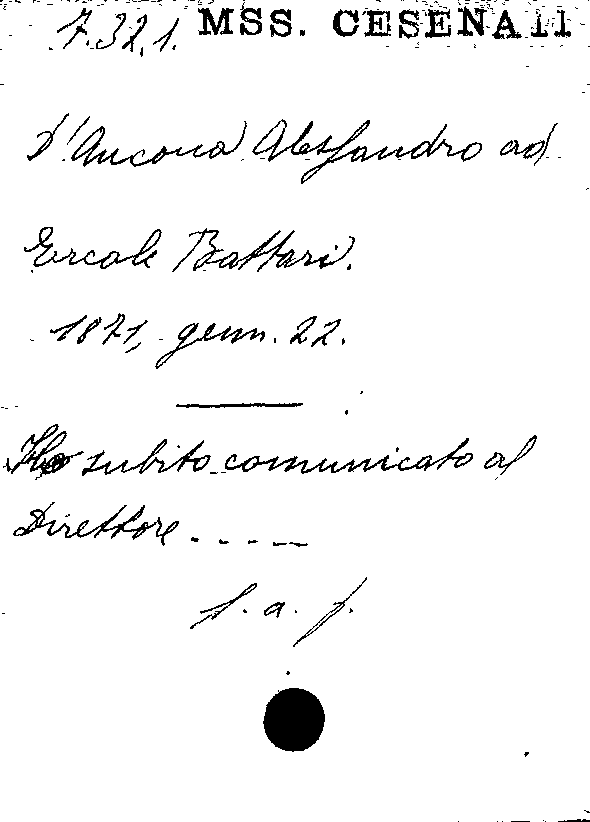 7.32.1. MSS. CESENATI
D'Ancona Alessandro ad
Ercole Battari.
1871, genn. 22.
Ho subito comunicato al
Direttore.....
l. a. f.